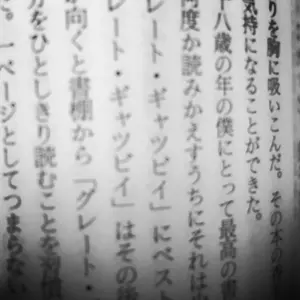 りを胸に吸いこんだ。その本の香
気持になることができた。
十八歳の年の僕にとって最高の書
何度か読みかえすうちにそれは少
レート・ギャツビイ』にベスト
レート・ギャツビイ』はその後
が向くと書棚から『グレート・
分をひとしきり読むことを習慣
た。一ページとしてつまらない